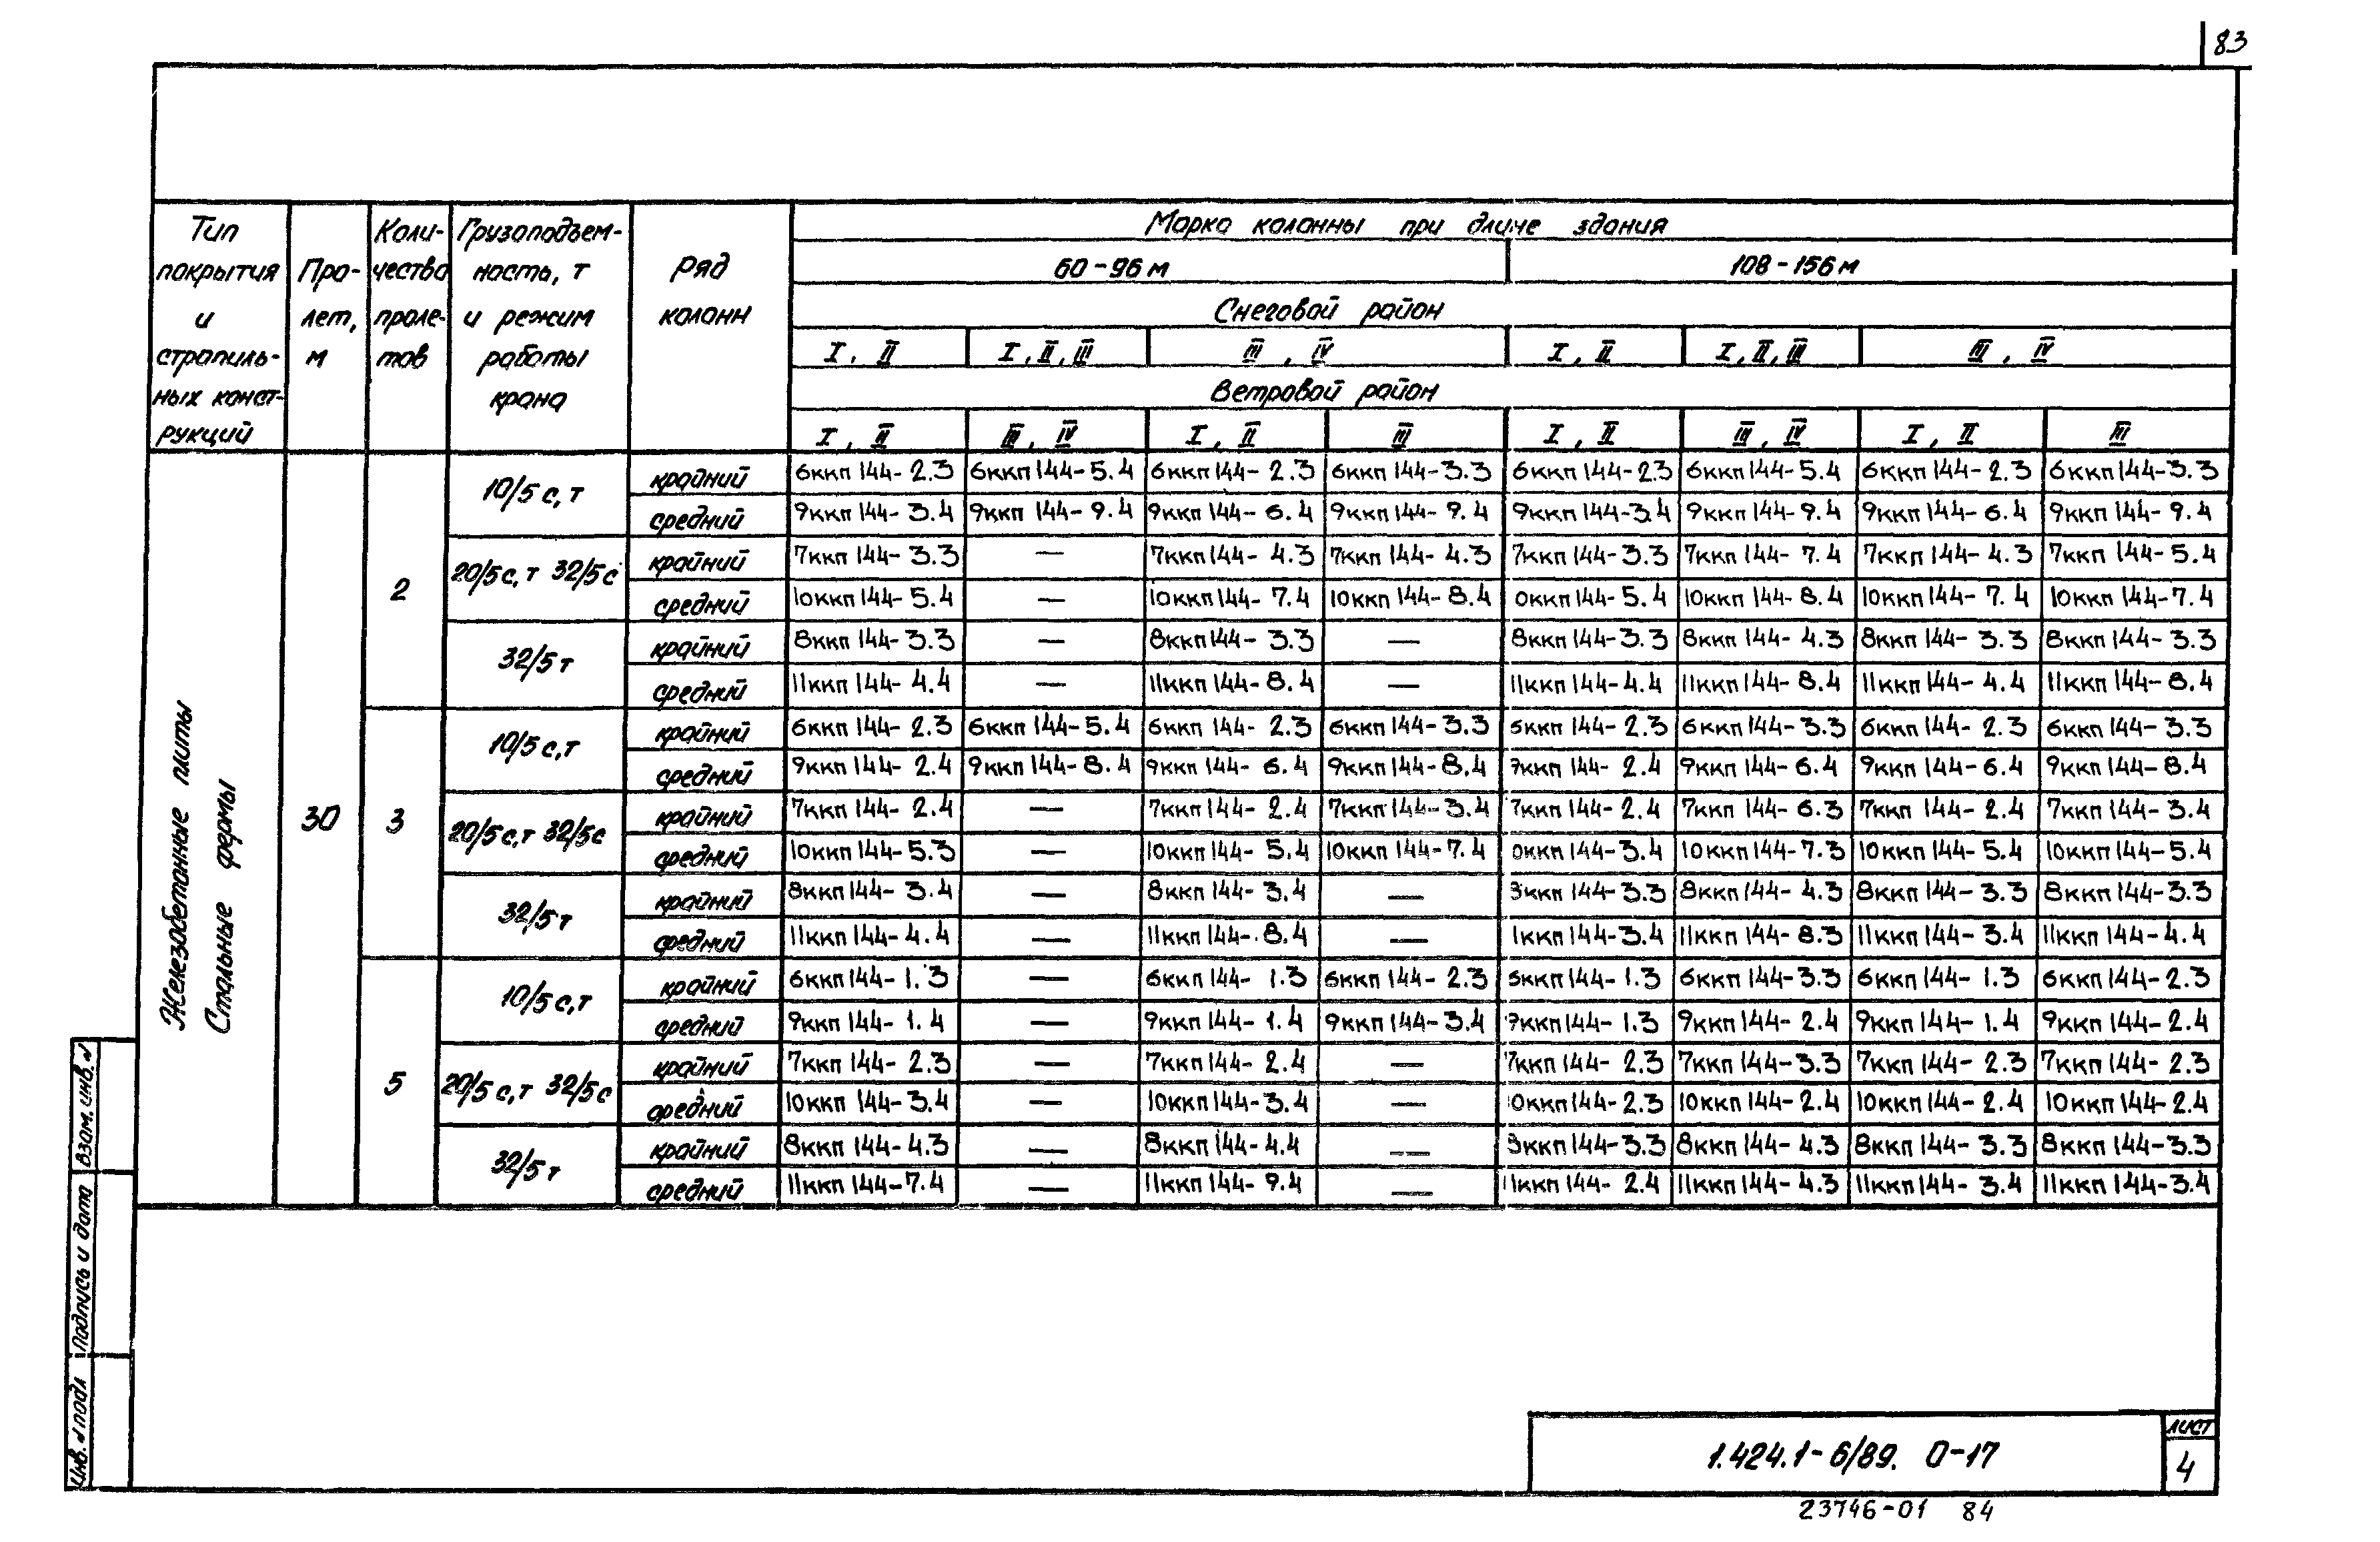 83
Тип покрытия и стропиль- ных конст- рукций | Про- лет, м | Коли- чество проле- тов | Грузоподъем- ность, т и режим работы крана | Ряд колонн | Марка колонны при длине здания
60-96 м | 108-156 м
Снеговой район
I, II | I, II, III | III, IV | I, II | I, II, III | III, IV
Ветровой район
I, II | III, IV | I, II | III | I, II | III, IV | I, II | III
Железобетонные плиты
Стальные фермы
30
2
10/5 с, т | крайний | 6ккп 144-2.3 | 6ккп 144-5.4 | 6ккп 144-2.3 | 6ккп 144-3.3 | 6ккп 144-2.3 | 6ккп 144-5.4 | 6ккп 144-2.3 | 6ккп 144-3.3
средний | 9ккп 144-3.4 | 9ккп 144-9.4 | 9ккп 144-6.4 | 9ккп 144-9.4 | 9ккп 144-3.4 | 9ккп 144-9.4 | 9ккп 144-6.4 | 9ккп 144-9.4
20/5 с, т 32/5 с | крайний | 7ккп 144-3.3 | — | 7ккп 144-4.3 | 7ккп 144-4.3 | 7ккп 144-3.3 | 7ккп 144-7.4 | 7ккп 144-4.3 | 7ккп 144-5.4
средний | 10ккп 144-5.4 | — | 10ккп 144-7.4 | 10ккп 144-8.4 | 0ккп 144-5.4 | 10ккп 144-8.4 | 10ккп 144-7.4 | 10ккп 144-7.4
32/5 т | крайний | 8ккп 144-3.3 | — | 8ккп 144-3.3 | — | 8ккп 144-3.3 | 8ккп 144-4.3 | 8ккп 144-3.3 | 8ккп 144-3.3
средний | 11ккп 144-4.4 | — | 11ккп 144-8.4 | — | 11ккп 144-4.4 | 11ккп 144-8.4 | 11ккп 144-4.4 | 11ккп 144-8.4
3
10/5 с, т | крайний | 6ккп 144-2.3 | 6ккп 144-5.4 | 6ккп 144-2.3 | 6ккп 144-3.3 | 6ккп 144-2.3 | 6ккп 144-3.3 | 6ккп 144-2.3 | 6ккп 144-3.3
средний | 9ккп 144-2.4 | 9ккп 144-8.4 | 9ккп 144-6.4 | 9ккп 144-8.4 | 9ккп 144-2.4 | 9ккп 144-6.4 | 9ккп 144-6.4 | 9ккп 144-8.4
20/5 с, т 32/5 с | крайний | 7ккп 144-2.4 | — | 7ккп 144-2.4 | 7ккп 144-3.4 | 7ккп 144-2.4 | 7ккп 144-6.3 | 7ккп 144-2.4 | 7ккп 144-3.4
средний | 10ккп 144-5.3 | — | 10ккп 144-5.4 | 10ккп 144-7.4 | 0ккп 144-3.4 | 10ккп 144-7.3 | 10ккп 144-5.4 | 10ккп 144-5.4
32/5 т | крайний | 8ккп 144-3.4 | — | 8ккп 144-3.4 | — | 8ккп 144-3.3 | 8ккп 144-4.3 | 8ккп 144-3.3 | 8ккп 144-3.3
средний | 11ккп 144-4.4 | — | 11ккп 144-8.4 | — | 1ккп 144-3.4 | 11ккп 144-8.3 | 11ккп 144-3.4 | 11ккп 144-4.4
5
10/5 с, т | крайний | 6ккп 144-1.3 | — | 6ккп 144-1.3 | 6ккп 144-2.3 | 6ккп 144-1.3 | 6ккп 144-3.3 | 6ккп 144-1.3 | 6ккп 144-2.3
средний | 9ккп 144-1.4 | — | 9ккп 144-1.4 | 9ккп 144-3.4 | 9ккп 144-1.3 | 9ккп 144-2.4 | 9ккп 144-1.4 | 9ккп 144-2.4
20/5 с, т 32/5 с | крайний | 7ккп 144-2.3 | — | 7ккп 144-2.4 | — | 7ккп 144-2.3 | 7ккп 144-3.3 | 7ккп 144-2.3 | 7ккп 144-2.3
средний | 10ккп 144-3.4 | — | 10ккп 144-3.4 | — | 10ккп 144-2.3 | 10ккп 144-2.4 | 10ккп 144-2.4 | 10ккп 144-2.4
32/5 т | крайний | 8ккп 144-4.3 | — | 8ккп 144-4.4 | — | 8ккп 144-3.3 | 8ккп 144-4.3 | 8ккп 144-3.3 | 8ккп 144-3.3
средний | 11ккп 144-7.4 | — | 11ккп 144-9.4 | — | 11ккп 144-2.4 | 11ккп 144-4.3 | 11ккп 144-3.4 | 11ккп 144-3.4
Взам. инв. №
Подпись и дата
Инв. № подл
1.424.1-6/89. 0-17
лист
4
23746-01 84